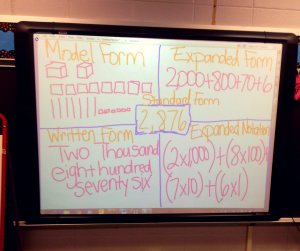 Model Form
Expanded Form
2,000+800+70+6
Standard Form
2,876
Written Form
Two Thousand
eight hundred
seventy six
Expanded Notation
(2x1000)+(8x100)+
(7x10)+(6x1)